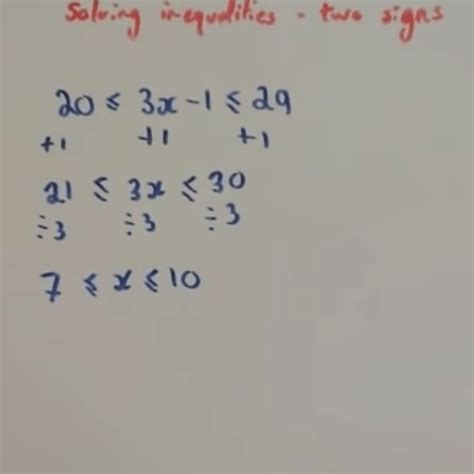 Solving inequalities - two signs
20 ≤ 3x - 1 ≤ 29
+1 +1 +1
21 ≤ 3x ≤ 30
÷3 ÷3 ÷3
7 ≤ x ≤ 10